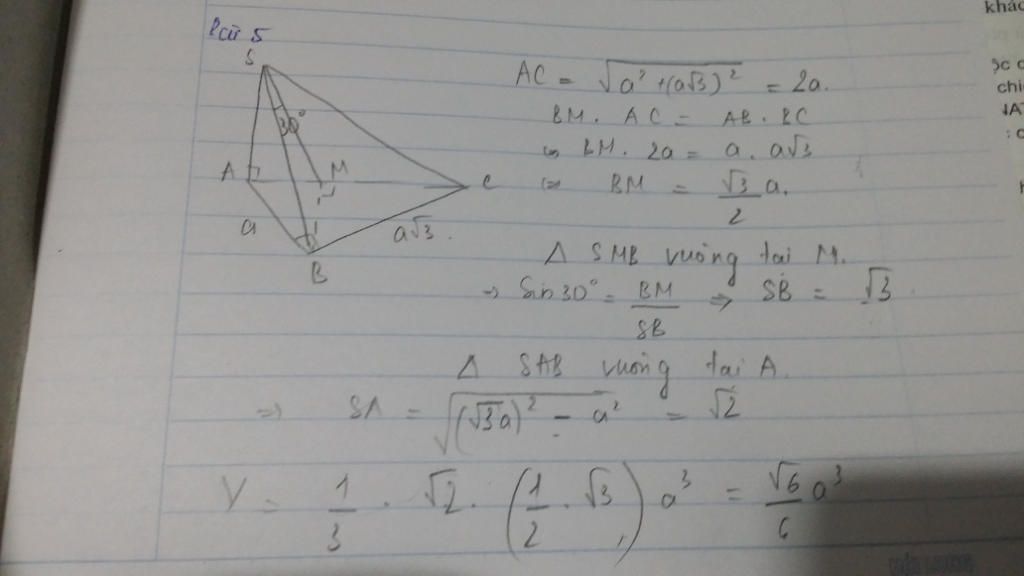 Câu 5
S
30°
A
M
C
a
a√3.
B
AC = √(a² + (a√3)²) = 2a.
BM. AC = AB. BC
⇔ BM. 2a = a. a√3
⇔ BM = √3/2 a.
Δ SMB vuông tại M.
⇒ Sin 30° = BM/SB ⇒ SB = √3
Δ SAB vuông tại A.
⇒ SA = √((√3a)² - a²) = √2
V = 1/3 . √2 . (1/2 . √3) a³ = √6/6 a³
khác
chi